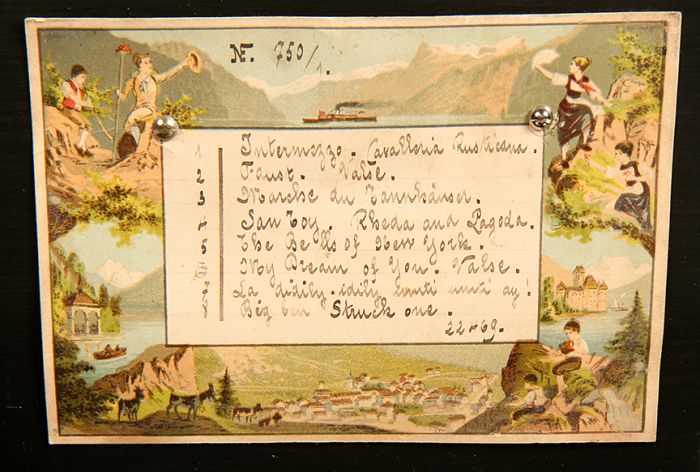 No. 750/1.
1 Intermezzo. Cavalleria Rusticana.
2 Faust. Valse.
3 Marche du Tannhäuser.
4 San Toy. Rheda and Pagoda.
5 The Bells of New York.
My Dream of You. Valse.
7 La didily-idily umti umti ay!
8 Big ben Struck one.
22469.